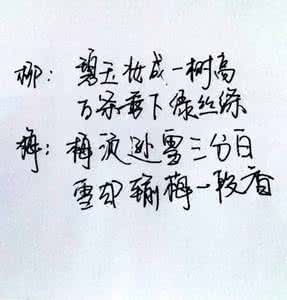 柳：碧玉妆成一树高
万条垂下绿丝绦
梅：梅须逊雪三分白
雪却输梅一段香